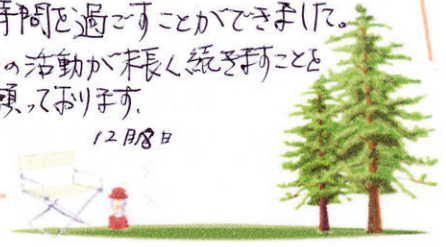 時間を過ごすことができました。
の活動が末長く続きますことを
願っております。
12月8日